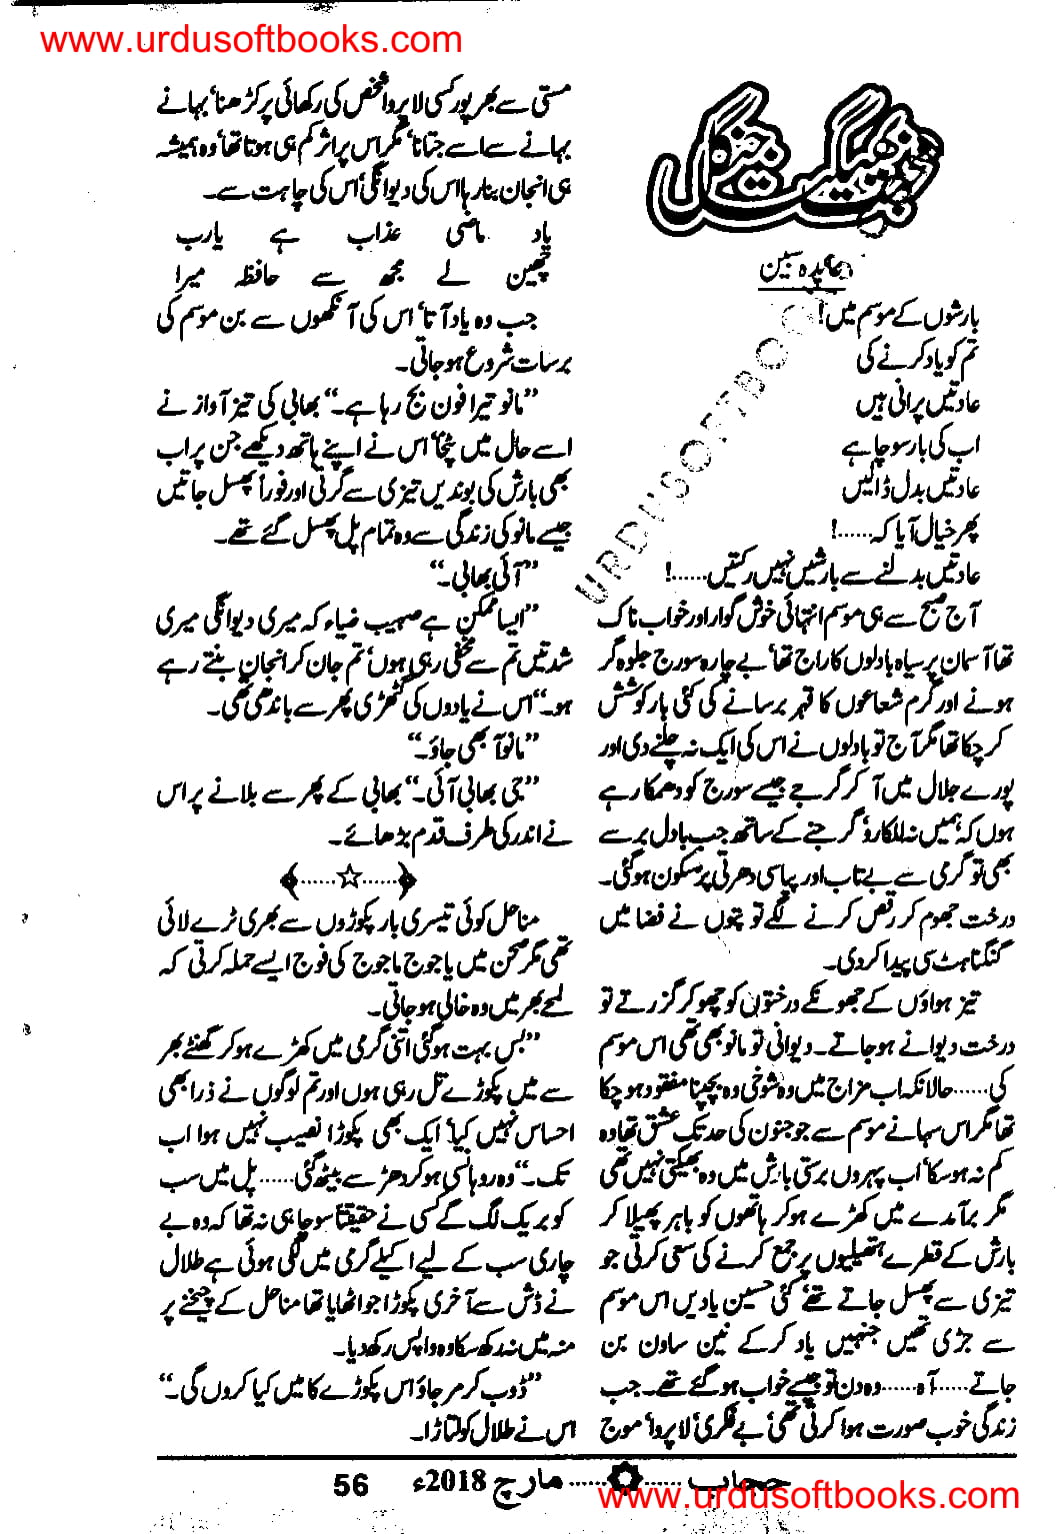 www.urdusoftbooks.com
بھیگتے جنگل
عابدہ سبین
بارشوں کے موسم میں!
تم کو یاد کرنے کی
عادتیں پرانی ہیں
اب کی بار سوچا ہے
عادتیں بدل ڈالیں
پھر خیال آیا کہ......!
عادتیں بدلنے سے بارشیں نہیں رکتیں......!
آج صبح سے ہی موسم انتہائی خوش گوار اور خواب ناک
تھا آسمان پر سیاہ بادلوں کا راج تھا' بے چارہ سورج جلوہ گر
ہونے اور گرم شعاعوں کا قہر برسانے کی کئی بار کوشش
کر چکا تھا مگر آج تو بادلوں نے اس کی ایک نہ چلنے دی اور
پورے جلال میں آ کر گرجے جیسے سورج کو دھمکا رہے
ہوں کہ ہمیں نہ للکارو' گرجنے کے ساتھ جب بادل برسے
بھی تو گرمی سے بے تاب اور پیاسی دھرتی پر سکون ہو گئی۔
درخت جھوم کر رقص کرنے لگے تو پتوں نے فضا میں
گنگناہٹ سی پیدا کر دی۔
تیز ہواؤں کے جھونکے درختوں کو چھو کر گزرتے تو
درخت دیوانے ہو جاتے۔ دیوانی تو مانو بھی تھی اس موسم
کی...... حالانکہ اب مزاج میں وہ شوخی وہ بچپنا مفقود ہو چکا
تھا مگر اس سہانے موسم سے جو جنون کی حد تک عشق تھا وہ
کم نہ ہو سکا' اب پہروں برستی بارش میں وہ بھیگتی نہیں تھی
مگر برآمدے میں کھڑے ہو کر ہاتھوں کو باہر پھیلا کر
بارش کے قطرے ہتھیلیوں پر جمع کرنے کی سعی کرتی جو
تیزی سے پھسل جاتے تھے' کئی حسین یادیں اس موسم
سے جڑی تھیں جنہیں یاد کرکے نین ساون بن
جاتے...... آہ...... وہ دن تو جیسے خواب ہو گئے تھے۔ جب
زندگی خوب صورت ہوا کرتی تھی' بے فکری' لا پروا' موج
مستی سے بھرپور کسی لا پروا شخص کی رکھائی پر کڑھنا' بہانے
بہانے سے اسے جتانا' مگر اس پر اثر کم ہی ہوتا تھا' وہ ہمیشہ
ہی انجان بنا رہا اس کی دیوانگی' اس کی چاہت سے۔
یاد ماضی عذاب ہے یارب
چھین لے مجھ سے حافظہ میرا
جب وہ یاد آتا' اس کی آنکھوں سے بن موسم کی
برسات شروع ہو جاتی۔
”مانو تیرا فون بج رہا ہے۔“ بھابی کی تیز آواز نے
اسے حال میں پٹخا' اس نے اپنے ہاتھ دیکھے جن پر اب
بھی بارش کی بوندیں تیزی سے گرتی اور فوراً پھسل جاتیں
جیسے مانو کی زندگی سے وہ تمام پل پھسل گئے تھے۔
”آئی بھابی۔“
”ایسا ممکن ہے صہیب ضیاء کہ میری دیوانگی میری
شدتیں تم سے مخفی رہی ہوں' تم جان کر انجان بنتے رہے
ہو۔“ اس نے یادوں کی گٹھڑی پھر سے باندھی تھی۔
”مانو آ بھی جاؤ۔“
”جی بھابی آئی۔“ بھابی کے پھر سے بلانے پر اس
نے اندر کی طرف قدم بڑھائے۔
......☆......
مناحل کوئی تیسری بار پکوڑوں سے بھری ٹرے لائی
تھی مگر صحن میں یاجوج ماجوج کی فوج ایسے حملہ کرتی کہ
لمحے بھر میں وہ خالی ہو جاتی۔
”بس بہت ہو گئی اتنی گرمی میں کھڑے ہو کر گھنٹے بھر
سے میں پکوڑے تل رہی ہوں اور تم لوگوں نے ذرا بھی
احساس نہیں کیا' ایک بھی پکوڑا نصیب نہیں ہوا اب
تک۔“ وہ روہانسی ہو کر دھڑ سے بیٹھ گئی...... پل میں سب
کو بریک لگ گئے کسی نے حقیقتاً سوچا ہی نہ تھا کہ وہ بے
چاری سب کے لیے اکیلے گرمی میں لگی ہوئی ہے طلال
نے ڈش سے آخری پکوڑا جو اٹھایا تھا مناحل کے چیخنے پر
منہ میں نہ رکھ سکا وہ واپس رکھ دیا۔
”ڈوب کر مر جاؤ اس پکوڑے کا میں کیا کروں گی۔“
اس نے طلال کو لتاڑا۔
حجاب ............ مارچ 2018ء 56
www.urdusoftbooks.com
URDUSOFTBOO